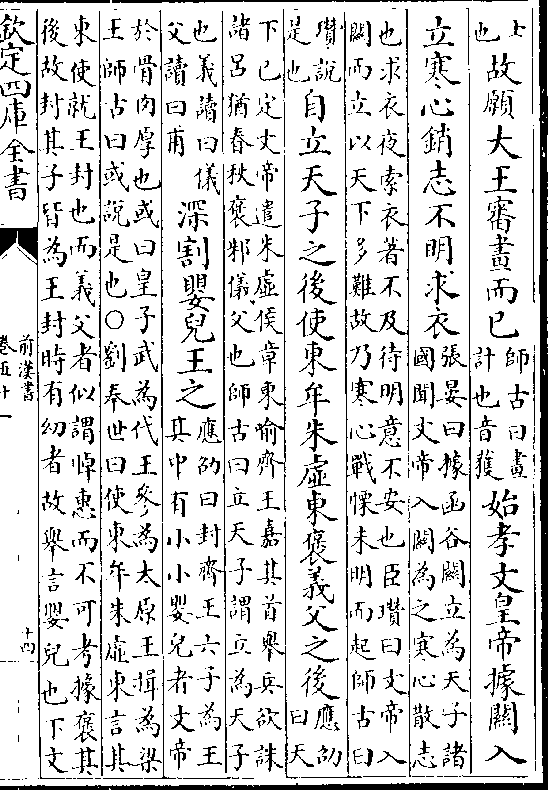 士也故願大王審畫而已師古曰畫計也音獲始孝文皇帝據關入
立寒心銷志不明求衣張晏曰據函谷關立為天子諸國聞文帝入關為之寒心散志
也求衣夜索衣著不及待明意不安也臣瓚曰文帝入關而立以天下多難故乃寒心戰慄未明而起師古曰
瓚說是也自立天子之後使東牟朱虛東褒義父之後應劭曰天
下已定文帝遣朱虛侯章東喻齊王嘉其首舉兵欲誅諸呂猶春秋褒邾儀父也師古曰立天子謂立為天子
也義讀曰儀父讀曰甫深割嬰兒王之應劭曰封齊王六子為王其中有小小嬰兒者文帝
於骨肉厚也或曰皇子武為代王參為太原王揖為梁王師古曰或說是也○劉奉世曰使東牟朱虛東言其
東使就王封也而義父者似謂悼惠而不可考據褒其後故封其子皆為王封時有幼者故舉言嬰兒也下文
欽定四庫全書
前漢書
卷五十一
十四